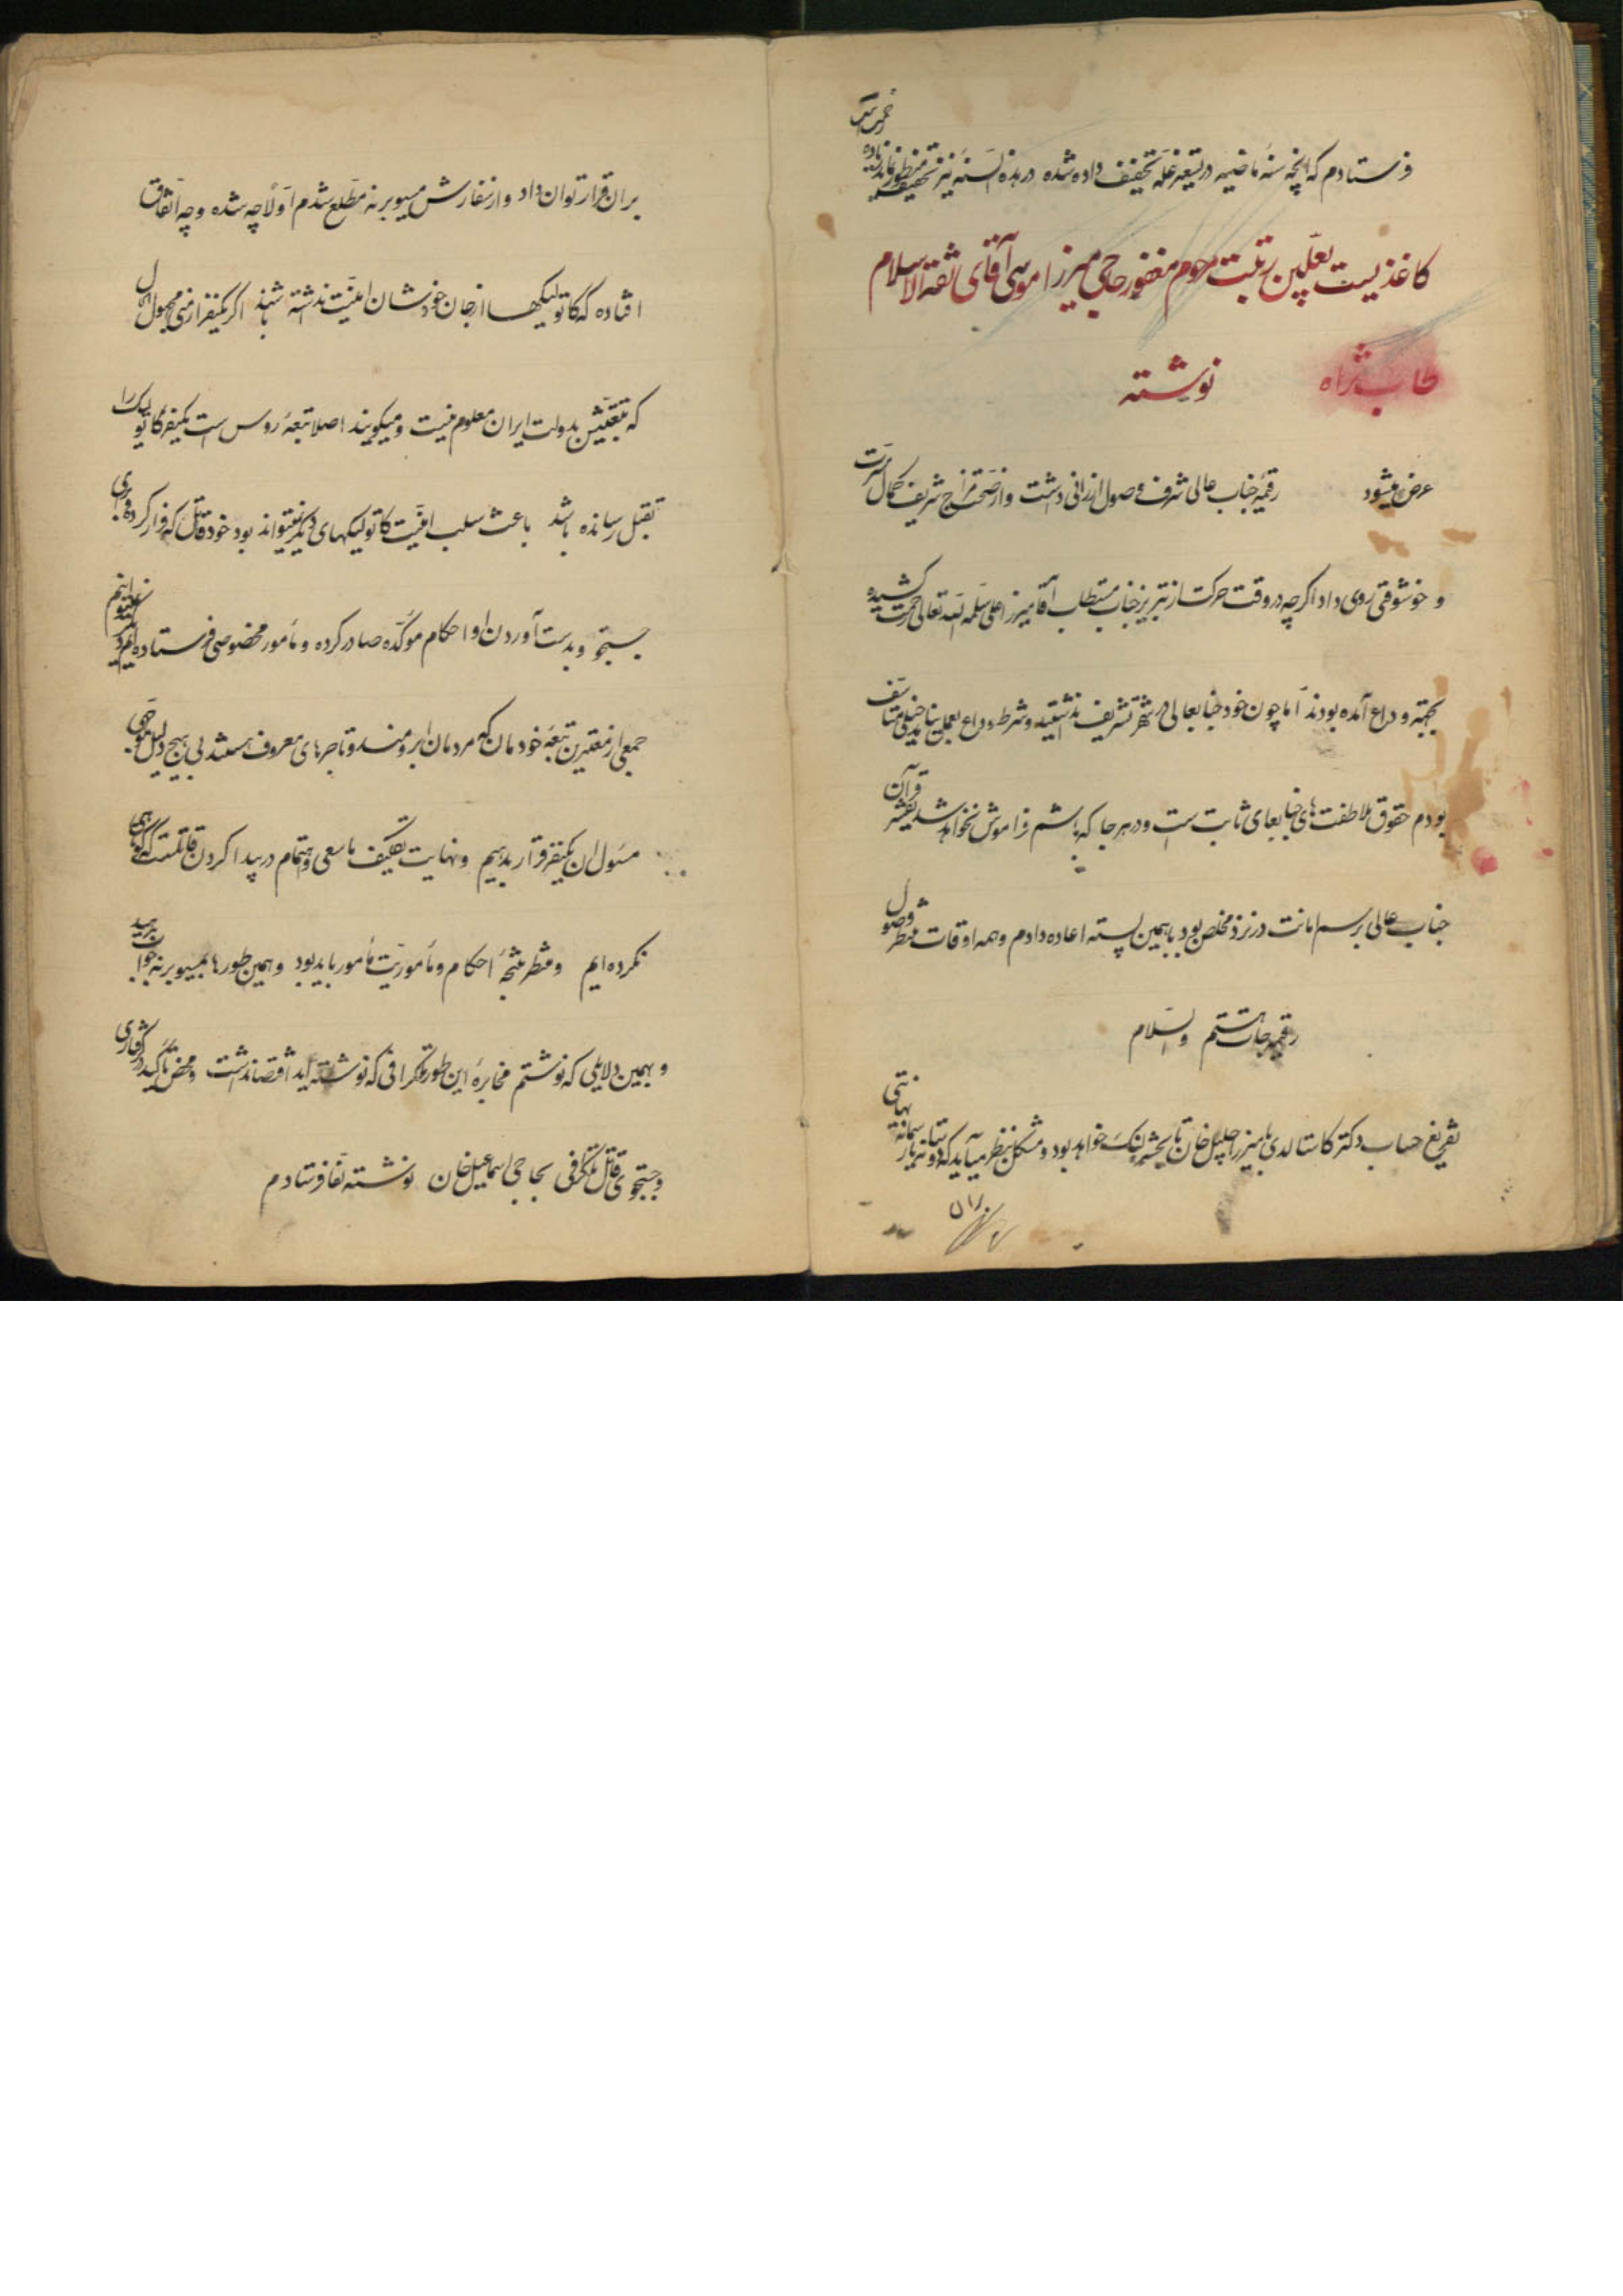 فرستادم که آنچه سنهٔ ماضیه در تسعیر غله تخفیف داده شده در هذه السنه نیز تخفیف منظور
کاغذیست بعلیین رتبت مرحوم مغفور حاجی میرزا موسی آقای ثقة الاسلام
طاب ثراه نوشته
عرض میشود رقیمهٔ جناب عالی شرف وصول ارزانی داشت و از صحت مزاج شریف کمال مسرت
و خوشوقتی روی داد اگرچه در وقت حرکت از تبریز جناب مستطاب آقا میرزا علی سلمه الله تعالی زحمت کشیده
بجهة وداع آمده بودند اما چون خود جنابعالی در شهر تشریف نداشتید و شرط وداع بعمل نیامد خیلی متأسف
بودم حقوق ملاطفت های جنابعالی ثابت است و در هر جا که باشم فراموش نخواهد شد قرآن
جناب عالی برسم امانت در نزد مخلص بود با همین پسته اعاده دادم و همه اوقات منتظر وصول
رقیمجات هستم والسلام
تفریغ حساب دکتر کاستالدی با میرزا جلیل خان تا پنجشنبه خواهد بود و مشکل بنظر میآید که
بر آن قرار توان داد و از سفارش مسیو برنه مطلع شدم اولا چه شده و چه اتفاق
افتاده که کاتولیکها از جان خودشان امنیت نداشته باشند اگر یکنفر ارمنی مجهول
که تبعیتش بدولت ایران معلوم نیست و میگویند اصلا تبعهٔ روس است یکنفر کاتولیک را
بقتل رسانده باشد باعث سلب امنیت کاتولیکهای دیگر نمیتواند بود خود قاتل که فرار کرده
جستجو و بدست آوردن او احکام مؤکده صادر کرده و مأمور مخصوصی فرستاده ایم دیگر نمیتوانیم
جمعی از معتبرین تبعهٔ خودمان که مردمان آبرومند و تاجرهای معروف هستند بی هیچ دلیل
مسئول آن یکنفر قرار بدهیم و نهایت تکلیف ما سعی و اهتمام در پیدا کردن قاتلست که کوتاهی
نکرده ایم و منتظر نتیجهٔ احکام و مأموریت مأمور باید بود و همین طورها بمسیو برنه جواب بدهید
و بهمین دلایلی که نوشتم مخابرهٔ این طور تلگرافی که نوشته اید اقتضا نداشت و محض تأکید در گرفتاری
و جستجوی قاتل تلگرافی بحاجی اسماعیل خان نوشته لفاً فرستادم